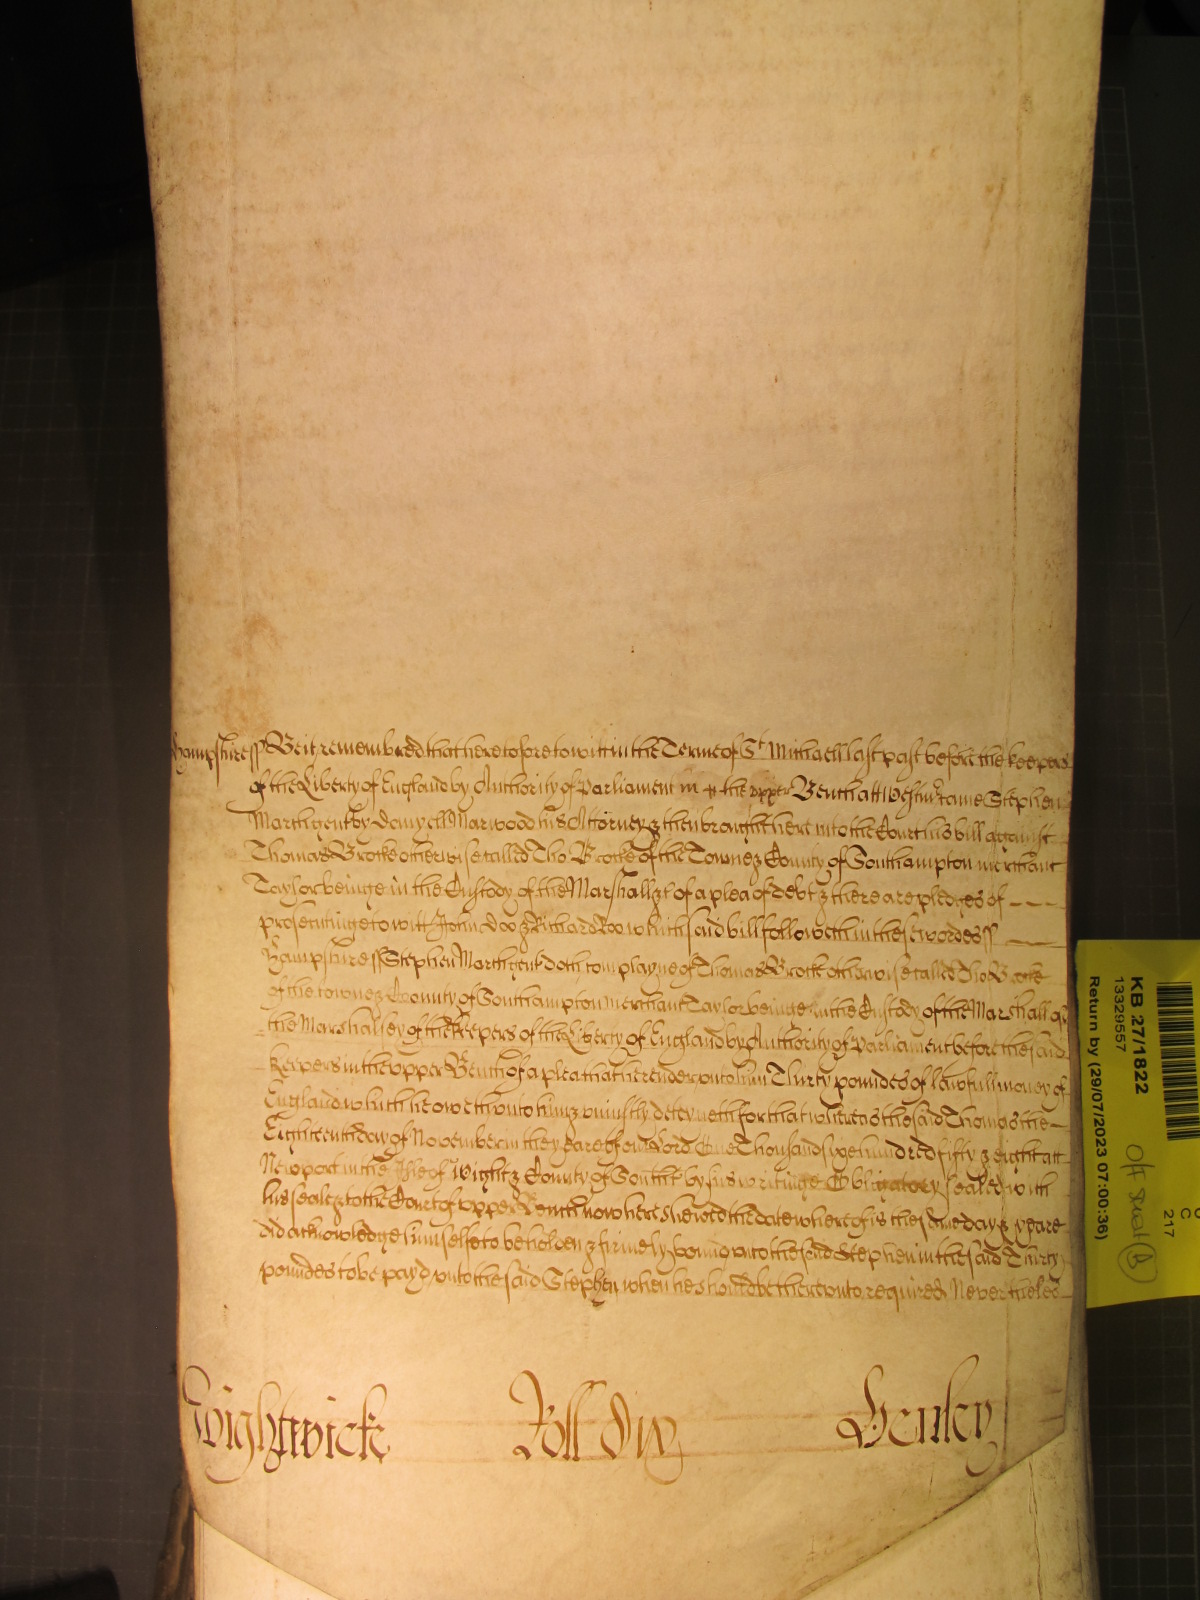 Hampshire ss Be it remembred that heretofore to witt in the Terme of St Michaell last past before the keepers
of the Liberty of England by Authority of Parliament in the upper Bench att Westmr came Stephen
March gent by Danyell Marwood his Attorney & then brought here into the Court his bill against
Thomas Brocke otherwise called Tho Brocke of the Towne & County of Southampton merchant
Taylor beinge in the Custody of the Marshall &c of a plea of debt & there are pledges of
prosecutinge to witt John Doo & Richard Roo which said bill followeth in these wordes ss
Hampshire ss Stephen March gent doth complayne of Thomas Brocke otherwise called Tho Brocke
of the towne & County of Southampton merchant Taylor beinge in the Custody of the Marshall of
the Marshalsey of the Keepers of the Liberty of England by Authority of Parliament before the said
Keepers in the upper Bench of a plea that he render unto him Thirty poundes of lawfull money of
England which he oweth unto him & uniustly deteyneth for that whereas the said Thomas the
Eighteenth day of November in the yeare of our Lord One Thousand sixe hundred fifty & eight att
Newport in the Isle of Wight & County of Southt by his writinge Obligatory sealed with
his seale & to the Court of upper Bench now here shewed the date whereof is the same day & yeare
did acknowledge himselfe to be holden & firmely bound unto the said Stephen in the said Thirty
poundes to be payd unto the said Stephen when he should be thereunto required Neverthelesse
Wightwick Roll Henley
KB 27/1822
13329557
Return by (29/07/2023 07:00:36)
C
217